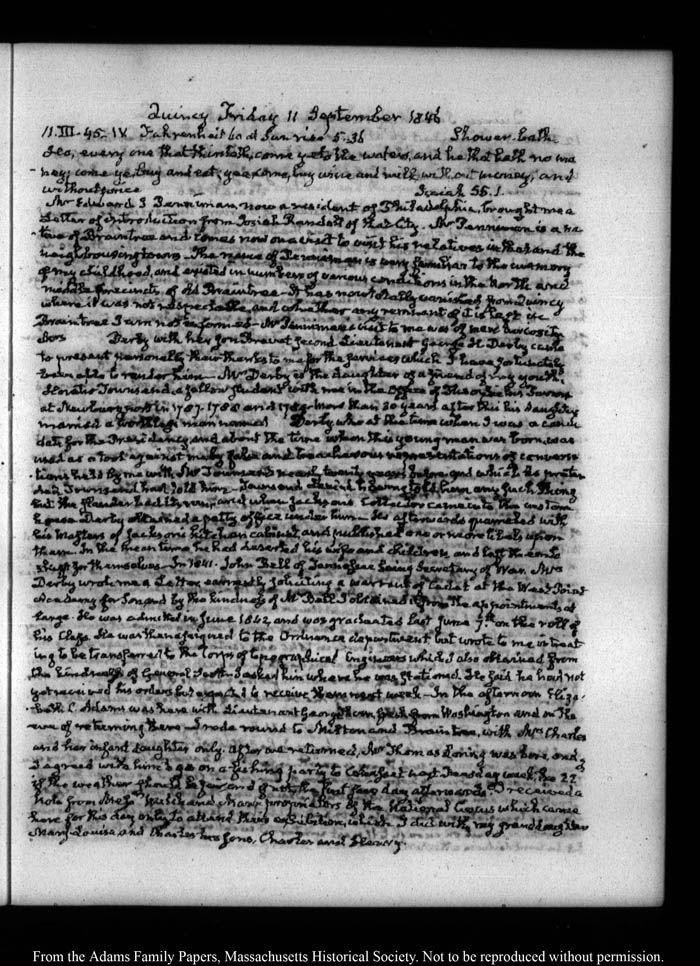 Quincy Friday 11 September 1846
11. III-45. IV Fahrenheit 60 at Sun rise 5-36 Shower-bath
Ho, every one that thirsteth, come ye to the waters, and he that hath no mo
ney; come ye, buy and eat; yea, come, buy wine and milk without money, and
without price Isaiah 55.1.
Mr Edward Penniman, now a resident of Philadelphia, brought me a
Letter of introduction from Josiah Randall of that City. Mr Penniman is a na
tive of Braintree and comes now on a visit to his relatives in that and the
neighbouring towns. The name of Penniman is very familiar to the memory
of my childhood, and existed in numbers of various conditions in the North and
middle precincts of old Braintree. It has now totally vanished from Quincy
where it was not respectable, and whether any remnant of it is left in
Braintree I am not informed. Mr Penniman's visit to me was of mere curiosity
Derby with her Son Brevet Second Lieutenant George H. Derby came
to present personally their thanks to me for the services which I have fortunately
been able to render him. Mrs Derby is the daughter of a friend of my youth,
Horatio Townsend, a fellow student with me in the Office of Theophilus Parsons
at Newburyport in 1787. 1788 and 1789. More than 30 years after this his daughter
married a worthless man named Derby who at the time when I was a candi
date for the Presidency, and about the time when this young man was born, was
used as a tool against me by false and treacherous representations of conversa
tions held by me with Mr Townsend nearly twenty years before, and which he preten
ded Townsend had told him. Townsend denied he had told him any such thing
but the slander had its run, and when Jackson's Collector came into the custom
house Derby obtained a petty office under him. He afterwards quarrelled with
his Masters of Jackson's kitchen cabinet, and published one or more libels upon
them. In the mean time he had deserted his wife and children, and left them to
shift for themselves. In 1841. John Bell of Tennessee being Secretary of War, Mrs
Derby wrote me a Letter earnestly soliciting a warrant of Cadet at the West Point
Academy for Son, and by the kindness of Mr Bell I obtained it from the appointments at
large. He was admitted in June 1842, and was graduated last June 7th on the roll of
his Class. He was then assigned to the Ordnance department but wrote to me intreat
ing to be transferred to the Corps of topographical Engineers which I also obtained from
the kindness of General Scott. I asked him where he was stationed. He said he had not
yet received his orders but expected to receive them next week. In the afternoon Eliza
beth C. Adams was here with Lieutenant George Thom, fresh from Washington and on the
eve of returning there. I rode round to Milton and Braintree, with Mrs Charles
and her infant daughter only. After we returned, Mr Thomas Loring was here, and
I agreed with him to go on a fishing party to Cohasset next Tuesday week, the 22d
if the weather should be fair, and if not, the first fair day afterwards. I received a
note from Welch and Mann proprietors of the National Circus which came
here for this day only to attend their exhibition, which I did with my granddaughter
Mary Louisa, and Charles's two Sons, Charles and Henry.
From the Adams Family Papers, Massachusetts Historical Society. Not to be reproduced without permission.